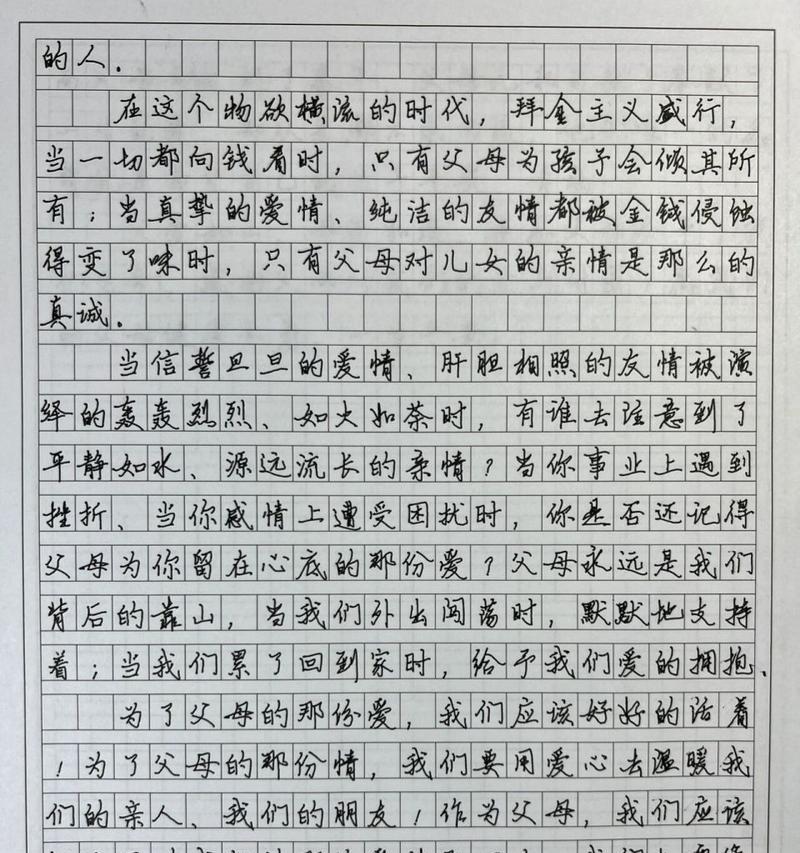 的人.
在这个物欲横流的时代，拜金主义盛行，
当一切都向钱看时，只有父母为孩子会倾其所
有；当真挚的爱情、纯洁的友情都被金钱侵蚀
得变了味时，只有父母对儿女的亲情是那么的
真诚.
当信誓旦旦的爱情、肝胆相照的友情被演
绎的轰轰烈烈、如火如荼时，有谁去注意到了
平静如水、源远流长的亲情？当你事业上遇到
挫折、当你感情上遭受困扰时，你是否还记得
父母为你留在心底的那份爱？父母永远是我们
背后的靠山，当我们外出闯荡时，默默地支持
着；当我们累了回到家时，给予我们爱的拥抱、
为了父母的那份爱，我们应该好好的活着
！为了父母的那份情，我们要用爱心去温暖我
们的亲人、我们的朋友！作为父母，我们应该